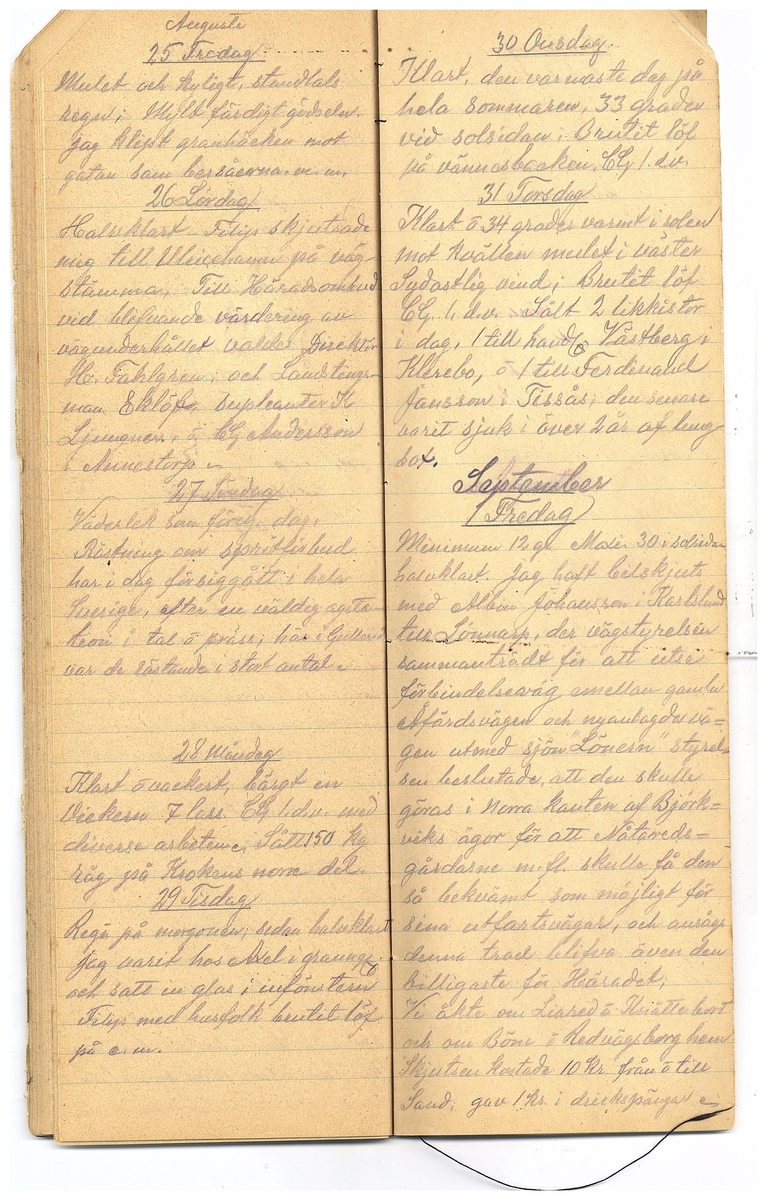 Augusti
25 Fredag
Mulet och kyligt, stundtals
regn; Mylt färdigt gödseln.
Jag klipt granhäcken mot
gatan som bersåerna. m. m.
26 Lördag
Halvklart Filip skjutsade
mig till Ulricehamn på väg-
stämma; Till Häradsombud
vid blifvande värdering av
vägunderhållet valdes Direktör
Hr. Fahlgren; och Landtings-
man Eklöf, supleanter K
Ljungner, ö CG Andersson
i Annestorp
27 Söndag
Väderlek som föreg. dag.
Röstning om spritförbud
har i dag försiggått i hela
Sverige, efter en väldig agita-
tion i tal ö präss; här i
var de röstande i stort antal
28 Måndag
Klart ö vackert, bärgt en
Vickern 7 lass. CG 1.d.v. med
diverse arbeten; Sått 150 kg
råg på Krokens norra del
29 Tisdag
Regn på morgonen; sedan halvklart
Jag varit hos Axel i
och satt in glas i infönstern
Filip med husfolk brutit löf
på e.m.
30 Onsdag
Klart, den varmaste dag på
hela sommaren, 33 grader
vid solsidan; Brutit löf
på vännäsbacken, CG 1.d.v.
31 Torsdag
Klart ö 34 grader varmt i solen
mot kvällen mulet i väster
Sydostlig vind; Brutit löf
CG. 1. d.v. Sålt 2 likkistor
i dag, 1 till Västberg i
Klerebo, ö 1 till Ferdinand
Jansson i Tissås; den senare
varit sjuk i över 2 år af lung
sot.
September
1 Fredag
Minimum 12 gr Maxi 30 i solsidan
halvklart. Jag haft betskjuts
med Albin Johansson i Karlslund
till Lönnarp, der vägstyrelsen
sammanträdt för att utse
förbindelseväg emellan gamla
Åfärdsvägen och nyanlagda vä=
gen utmed sjön "Lönern" styrel-
sen beslutade, att den skulle
göras i norra kanten af Björk=
viks ägor för att Nåtareds=
gårdarne m.fl. skulle få den
så bekvämt som möjligt för
sina utfartsvägar, och ansågs
denna trad blifva även den
billigaste för Häradet;
Vi åkte om Liared ö Knätte bort
och om Böne ö Redvägsborg hem
Skjutsen kostade 10 Kr. från ö till
Sand; gav 1 kr. i drickspängar